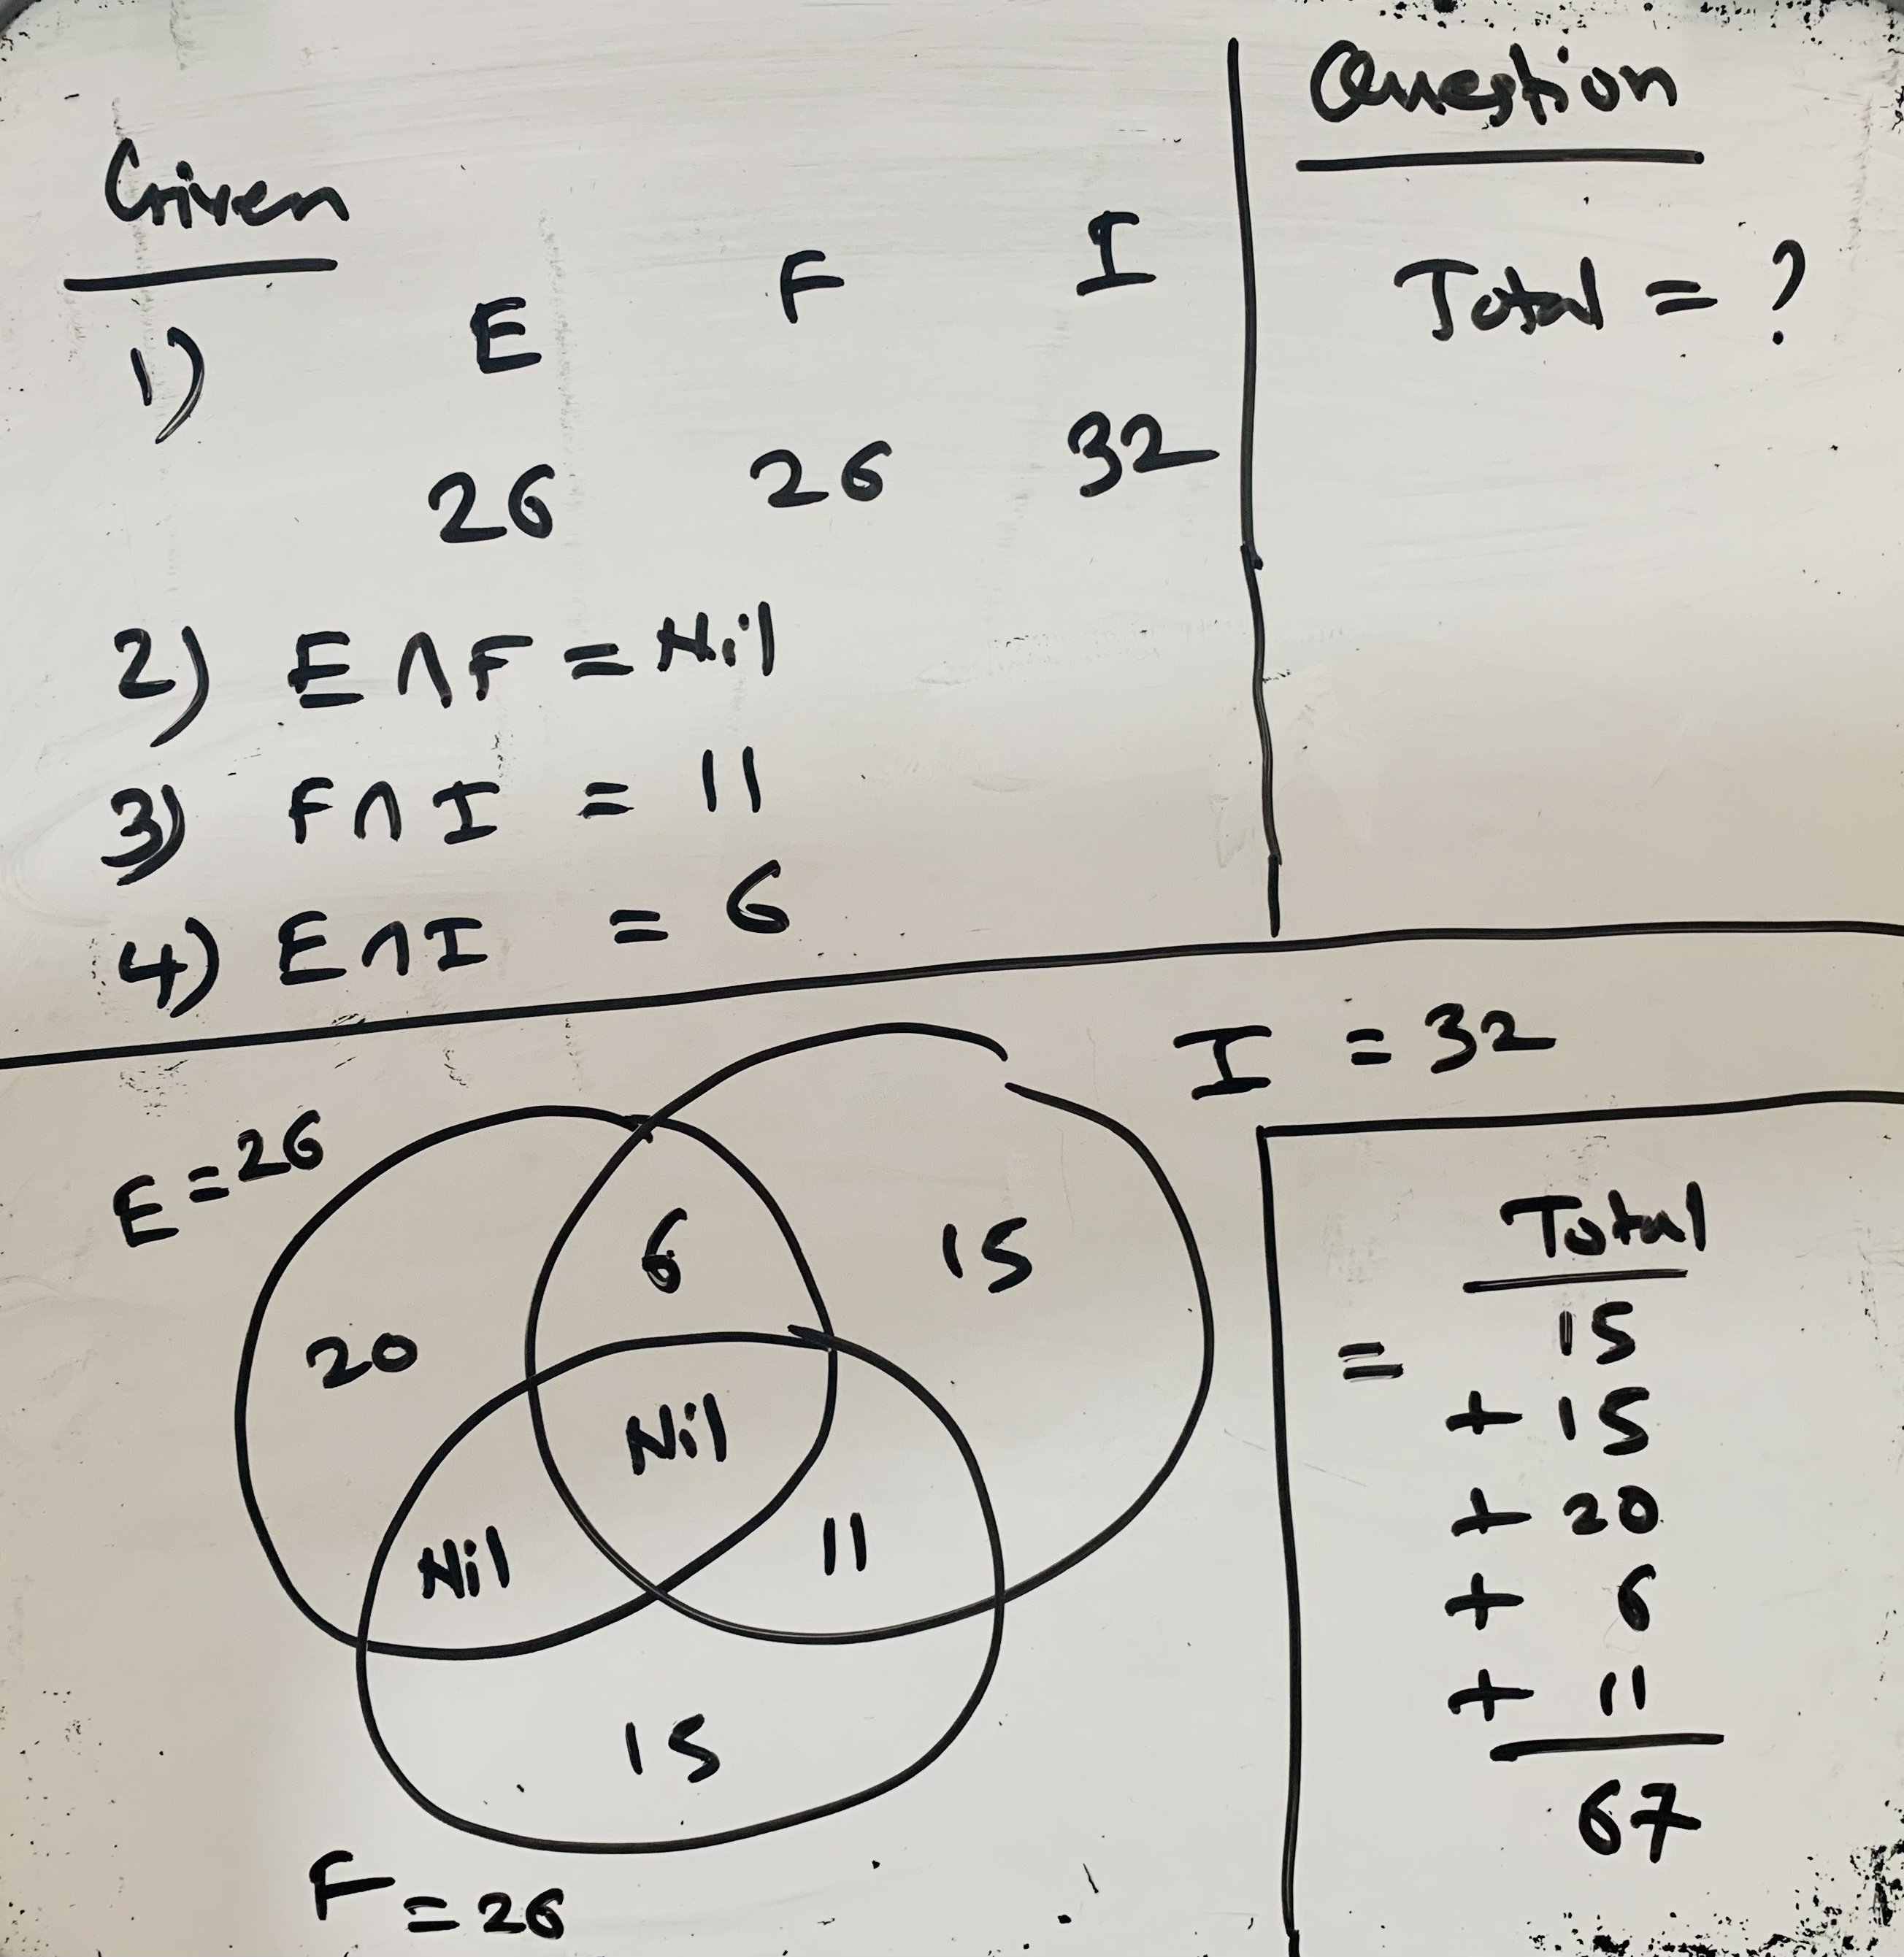 Given
1) E F I
26 26 32
2) E ∩ F = Nil
3) F ∩ I = 11
4) E ∩ I = 6
Question
Total = ?
I = 32
E = 26
6 15
20
Nil
Nil 11
15
F = 26
Total
= 15
+ 15
+ 20
+ 6
+ 11
67